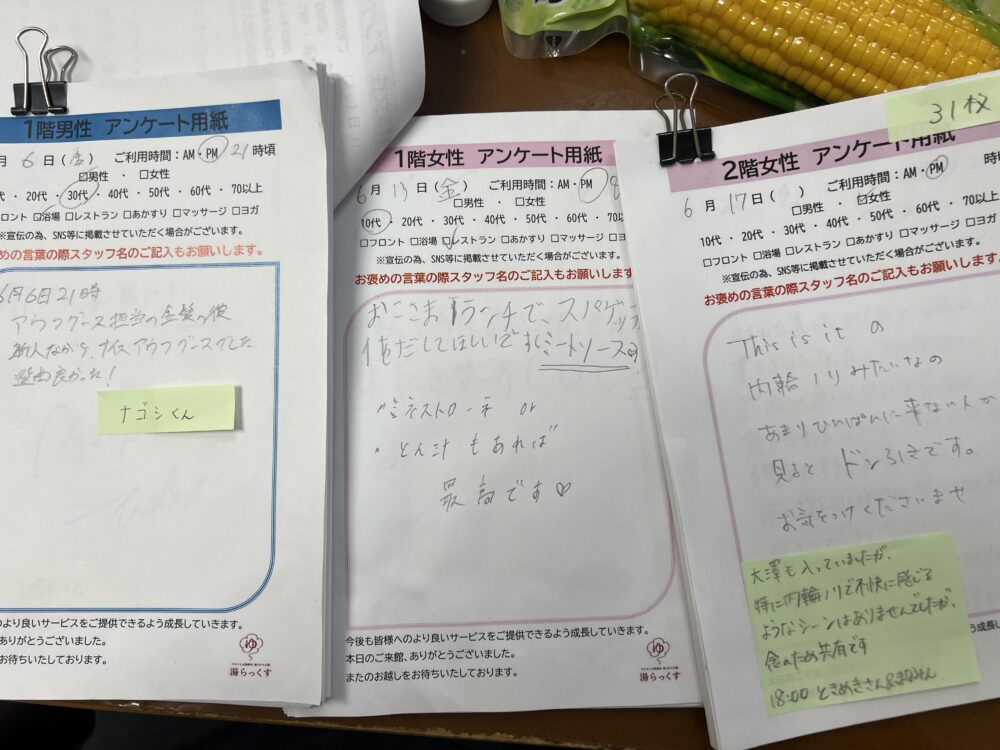 1階男性 アンケート用紙
月 6 日(金) ご利用時間:AM・PM 21 時頃
□男性 ・ □女性
・20代・30代・40代・50代・60代・70以上
フロント □浴場 □レストラン □あかすり □マッサージ □ヨガ
※宣伝の為、SNS等に掲載させていただく場合がございます。
めの言葉の際スタッフ名のご記入もお願いします。
6月6日21時
アウフグース担当の金髪の彼
新人ながら、ナイスアウフグースでした
選曲良かった!
ナゴシくん
より良いサービスをご提供できるよう成長していきます。
ありがとうございました。
お待ちいたしております。
湯らっくす
1階女性 アンケート用紙
6 月 13 日(金) ご利用時間:AM・PM 8
□男性 ・ □女性
10代・20代・30代・40代・50代・60代・70
□フロント □浴場 □レストラン □あかすり □マッサージ □ヨ
※宣伝の為、SNS等に掲載させていただく場合がございます。
お褒めの言葉の際スタッフ名のご記入もお願いします
おこさまランチで、スパゲッティ
味だしてほしいです(ミートソース
ミネストローネ or
・とん汁もあれば
最高です♡
今後も皆様へのより良いサービスをご提供できるよう成長していきます。
本日のご来館、ありがとうございました。
またのお越しをお待ちいたしております。
湯らっくす
31枚
2階女性 アンケート用紙
6 月 17日( ) ご利用時間:AM・PM 時頃
□男性 ・ □女性
10代・20代・30代・40代・50代・60代・70以上
□フロント □浴場 □レストラン □あかすり □マッサージ □ヨガ
※宣伝の為、SNS等に掲載させていただく場合がございます。
お褒めの言葉の際スタッフ名のご記入もお願いします。
This is it の
内輪ノリみたいなの
あまりひんぱんに来ない人が
見ると ドン引きです。
お気をつけくださいませ
大澤も入っていましたが、
特に内輪ノリで不快に感じる
ようなシーンはありませんでしたが、
念のため共有です
18:00 ときめきさん&